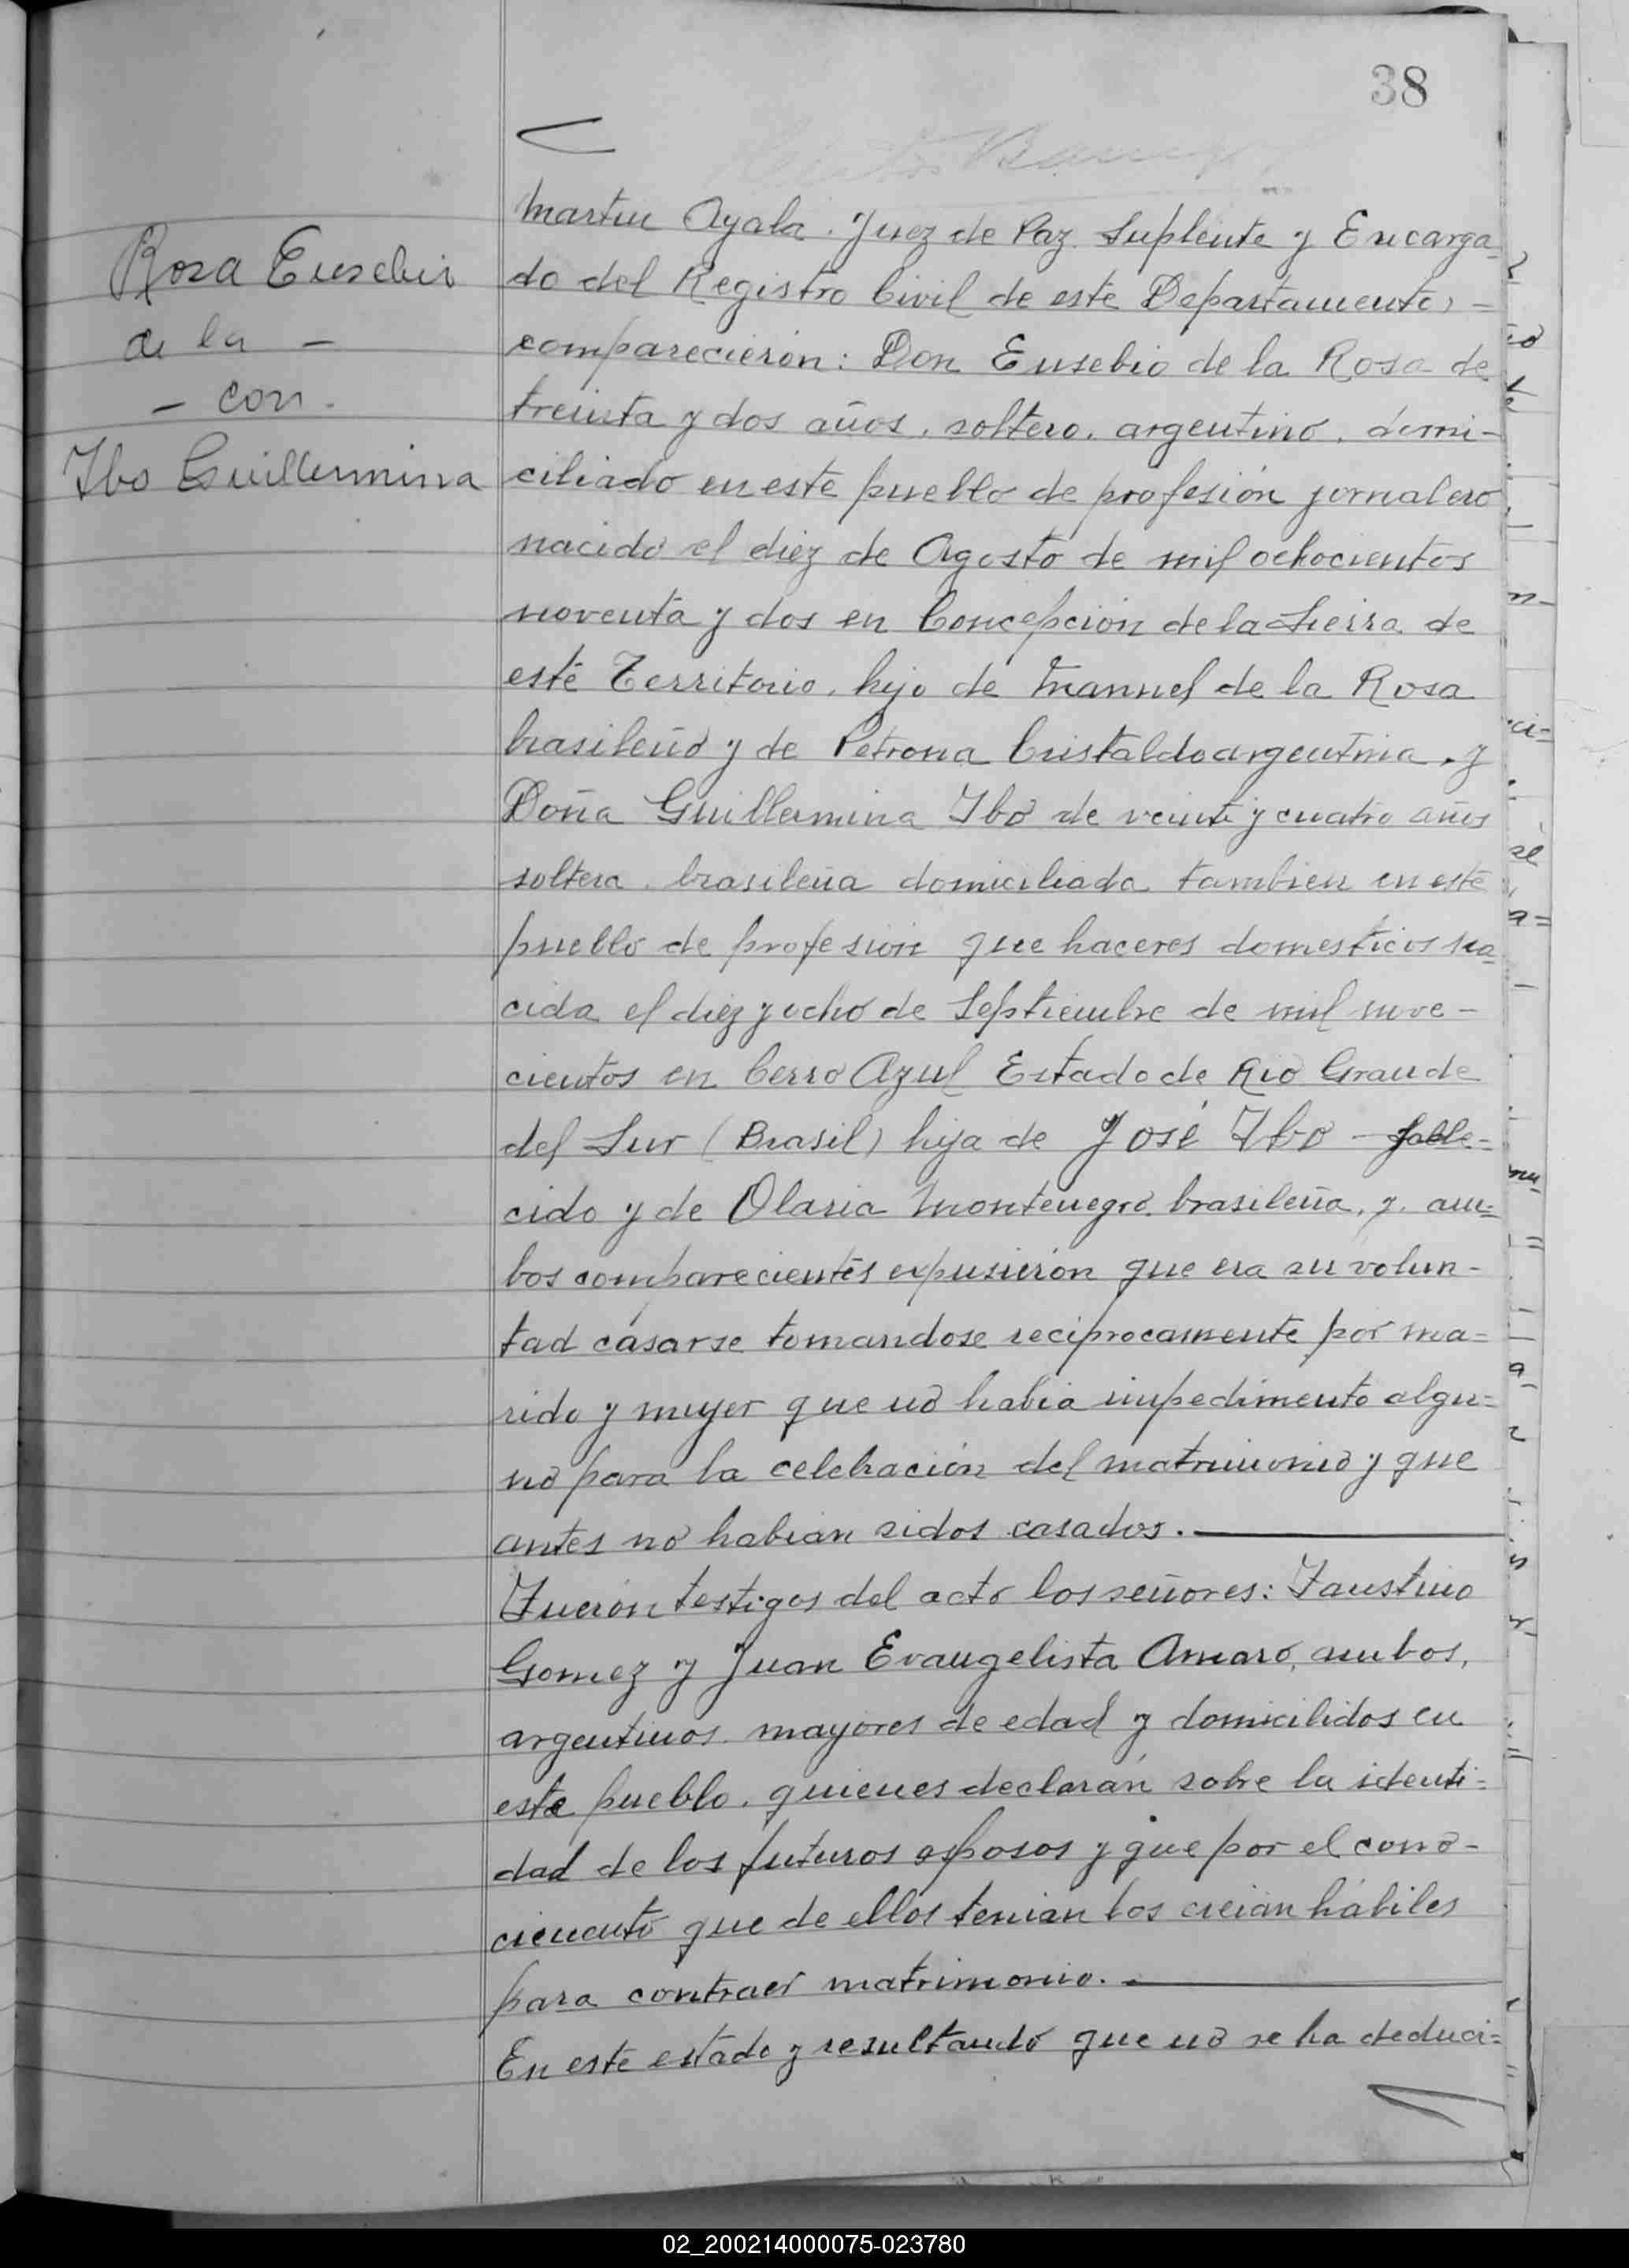 38
Martin Ayala. Juez de Paz Suplente y Encarga-
do del Registro Civil de este Departamento, =
comparecierón: Don Eusebio de la Rosa de
treinta y dos años, soltero, argentino, domi-
ciliado en este pueblo de profesión jornalero
nacido el diez de Agosto de mil ochocientos
noventa y dos en Concepción de la Sierra de
este Territorio, hijo de Manuel de la Rosa
brasileño y de Petrona Cristaldo argentina, y
Doña Guillermina Ibo de veinti y cuatro años
soltera, brasileña domiciliada tambien en este
pueblo de profesión que haceres domesticos na-
cida el diez y ocho de Septiembre de mil nove-
cientos en Cerro Azul Estado de Rio Grande
del Sur (Brasil) hija de José Ibo - falle=
cido y de Olaria Montenegro brasileña, y. am=
bos comparecientes expusierón que era su volun-
tad casarse tomandose reciprocamente por ma=
rido y mujer que no habia impedimento algu=
no para la celebración del matrimonio y que
antes no habian sidos casados.
Fuerón testigos del acto los señores: Faustino
Gomez y Juan Evangelista Amaro, ambos,
argentinos. mayores de edad y domicilidos en
este pueblo. quienes declarán sobre la identi=
dad de los futuros esposos y que por el cono-
cimento que de ellos tenian los creian hábiles
para contraer matrimonio.
En este estado y resultando que no se ha deduci=
Rosa Eusebio
de la -
- con.
Ibo Guillermina
02_200214000075-023780